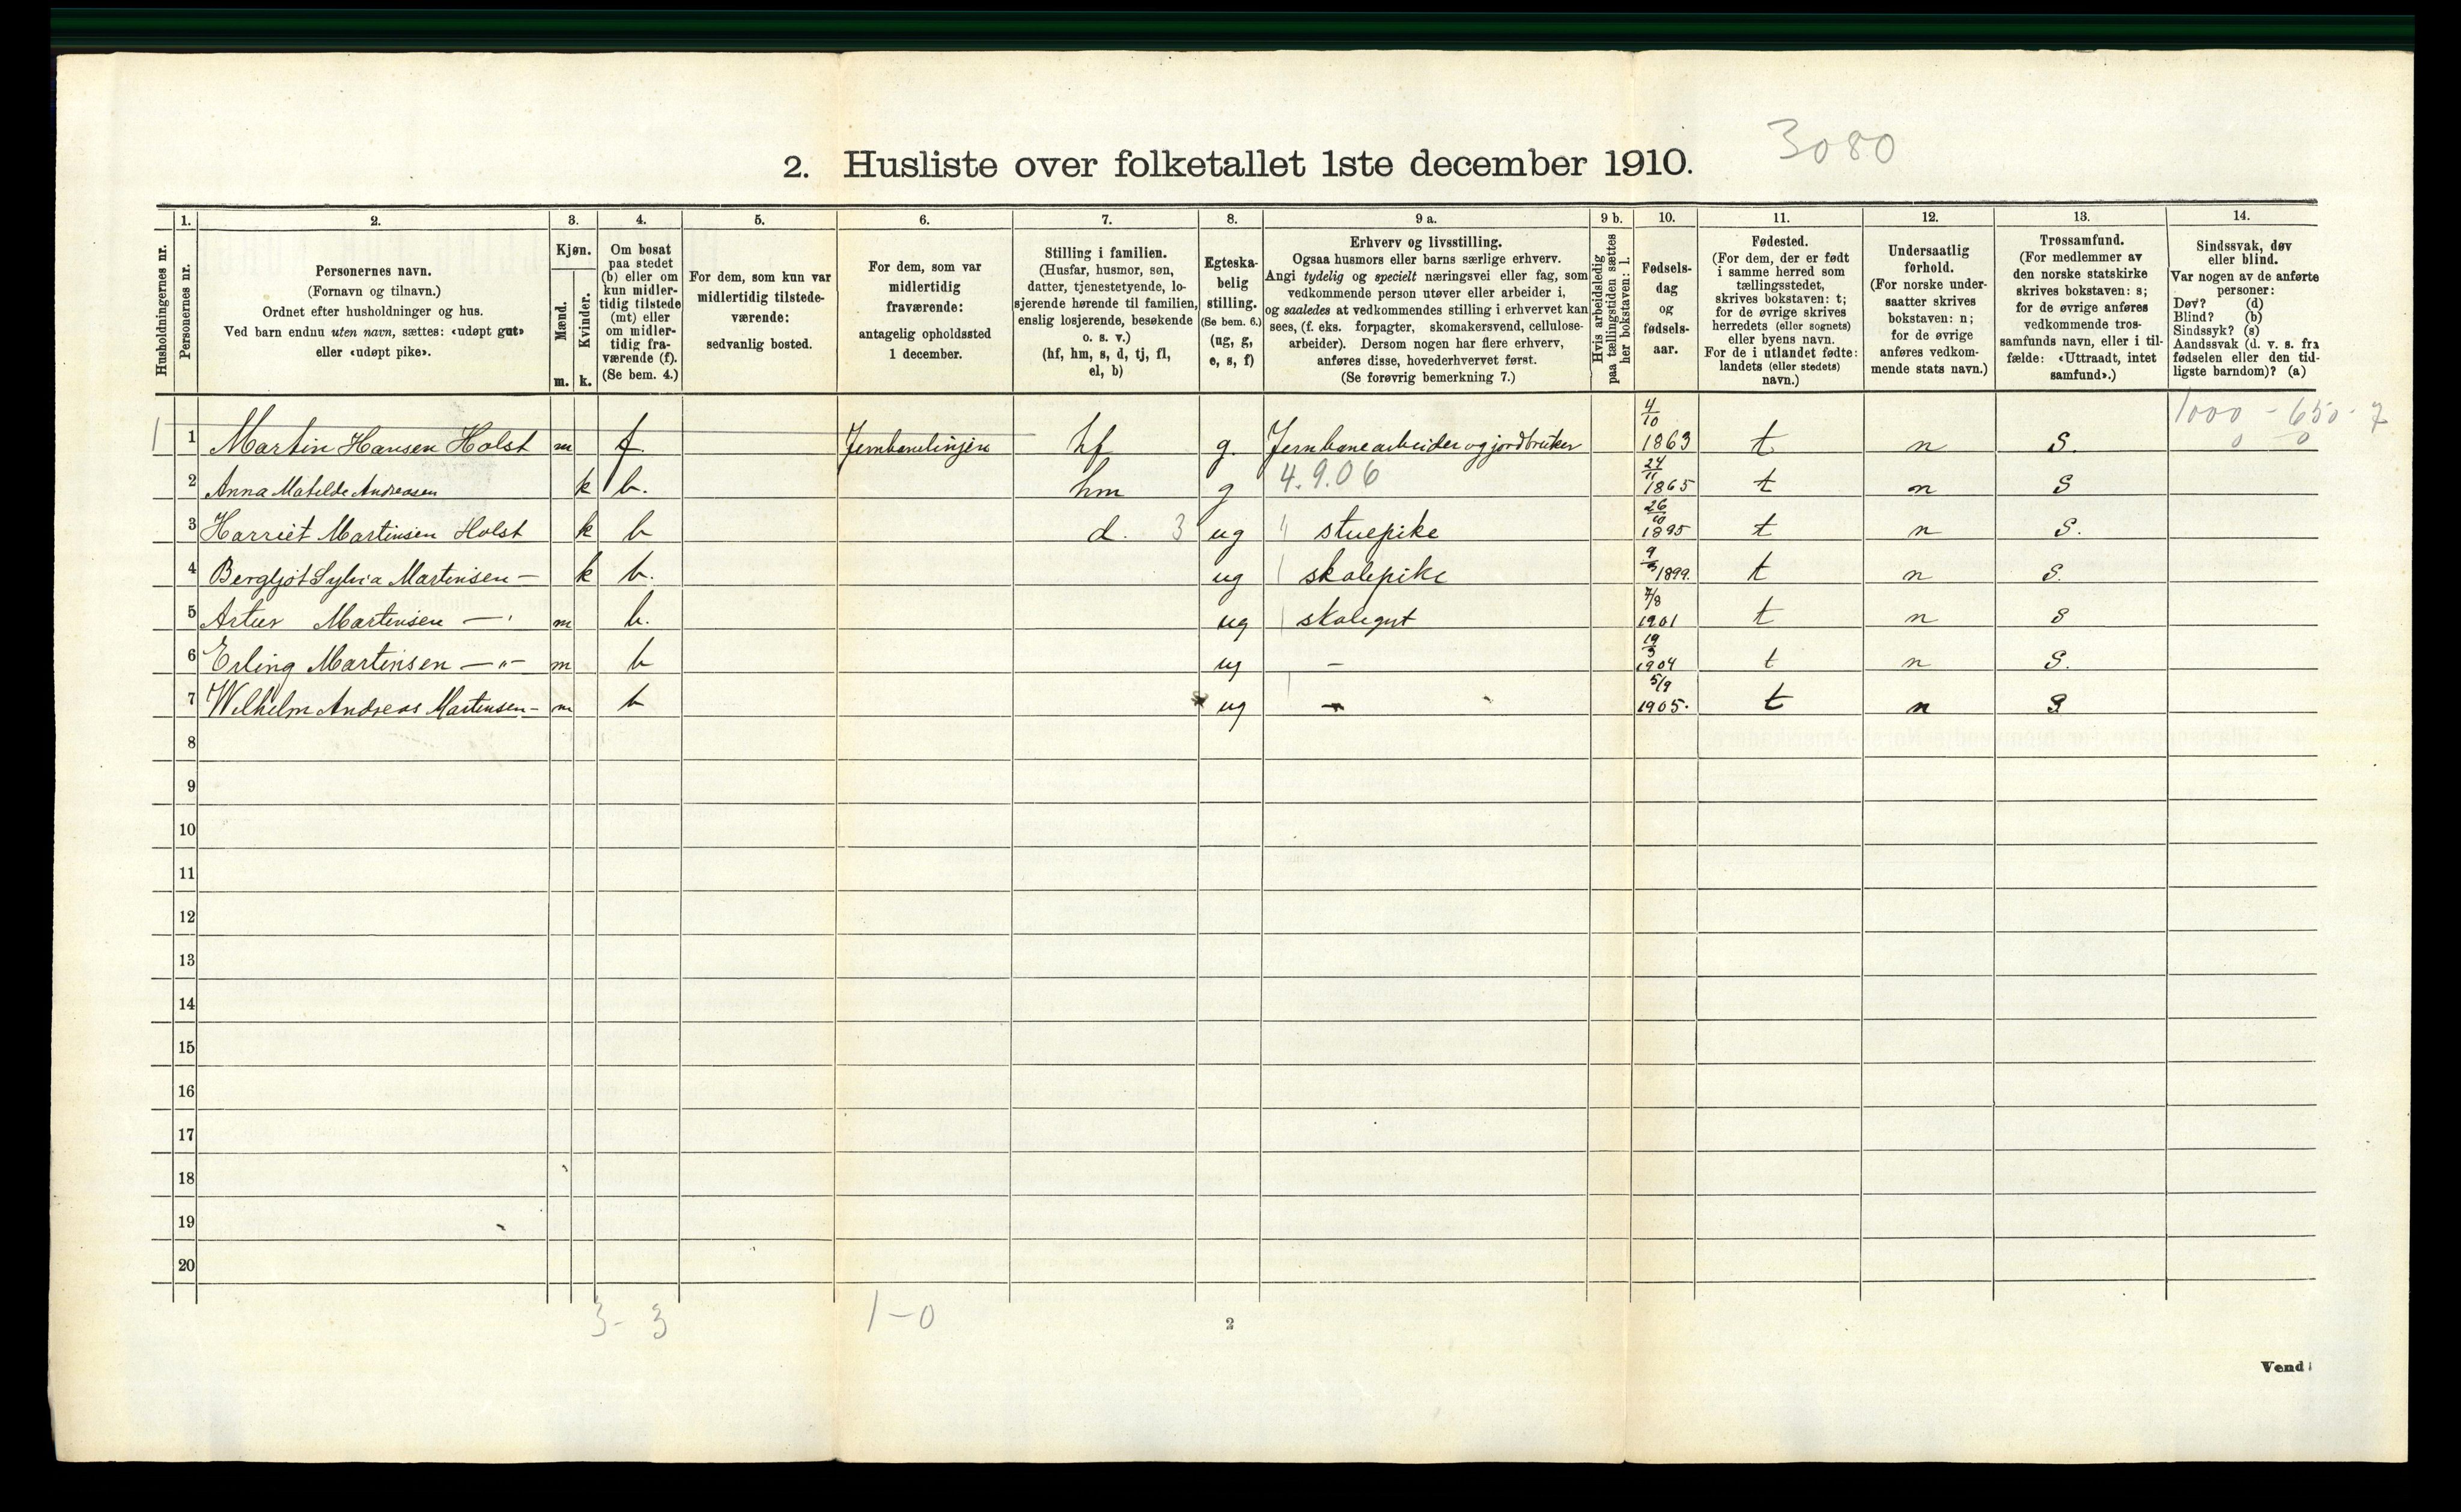 3080
2. Husliste over folketallet 1ste december 1910.
Husholdningernes nr.
1.
Personernes nr.
2.
Personernes navn.
(Fornavn og tilnavn.)
Ordnet efter husholdninger og hus.
Ved barn endnu uten navn, sættes: «udøpt gut»
eller «udøpt pike».
3.
Kjøn.
Mænd.
Kvinder.
m. k.
4.
Om bosat
paa stedet
(b) eller om
kun midler-
tidig tilstede
(mt) eller
om midler-
tidig fra-
værende (f).
(Se bem. 4.)
5.
For dem, som kun var
midlertidig tilstede-
værende:
sedvanlig bosted.
6.
For dem, som var
midlertidig
fraværende:
antagelig opholdssted
1 december.
7.
Stilling i familien.
(Husfar, husmor, søn,
datter, tjenestetyende, lo-
sjerende hørende til familien,
enslig losjerende, besøkende
o. s. v.)
(hf, hm, s, d, tj, fl,
el, b)
8.
Egteska-
belig
stilling.
(Se bem. 6.)
(ug, g,
e, s, f)
9 a.
Erhverv og livsstilling.
Ogsaa husmors eller barns særlige erhverv.
Angi tydelig og specielt næringsvei eller fag, som
vedkommende person utøver eller arbeider i,
og saaledes at vedkommendes stilling i erhvervet kan
sees, (f. eks. forpagter, skomakersvend, cellulose-
arbeider). Dersom nogen har flere erhverv,
anføres disse, hovederhvervet først.
(Se forøvrig bemerkning 7.)
9 b.
Hvis arbeidsledig
paa tællingstiden sættes
her bokstaven: l.
10.
Fødsels-
dag
og
fødsels-
aar.
11.
Fødested.
(For dem, der er født
i samme herred som
tællingsstedet,
skrives bokstaven: t;
for de øvrige skrives
herredets (eller sognets)
eller byens navn.
For de i utlandet fødte:
landets (eller stedets)
navn.)
12.
Undersaatlig
forhold.
(For norske under-
saatter skrives
bokstaven: n;
for de øvrige
anføres vedkom-
mende stats navn.)
13.
Trossamfund.
(For medlemmer av
den norske statskirke
skrives bokstaven: s;
for de øvrige anføres
vedkommende tros-
samfunds navn, eller i til-
fælde: «Uttraadt, intet
samfund».)
14.
Sindssvak, døv
eller blind.
Var nogen av de anførte
personer:
Døv? (d)
Blind? (b)
Sindssyk? (s)
Aandssvak (d. v. s. fra
fødselen eller den tid-
ligste barndom)? (a)
1000 - 650 - 7
0 0
1 1 Martin Hansen Holst m f. Jernbanelinjen hf g. Jernbanearbeider og jordbruker 4/10 1863 t n S.
2 Anna Matelde Andreasen k b. hm g 4.9.06 24/11 1865 t n S
3 Harriet Martinsen Holst k b d. 3 ug stuepike 26/10 1895 t n S.
4 Bergljot Sylvia Martinsen — k b. ug skolepike 9/3 1899. t n S.
5 Artur Martinsen — m b. ug skolegut 7/8 1901 t n S
6 Erling Martinsen — " — m b ug — 19/3 1904 t n S.
7 Wilhelm Andreas Martinsen — m b ug — 5/9 1905. t n S
8
9
10
11
12
13
14
15
16
17
18
19
20
3 - 3 1 - 0
2
Vend!